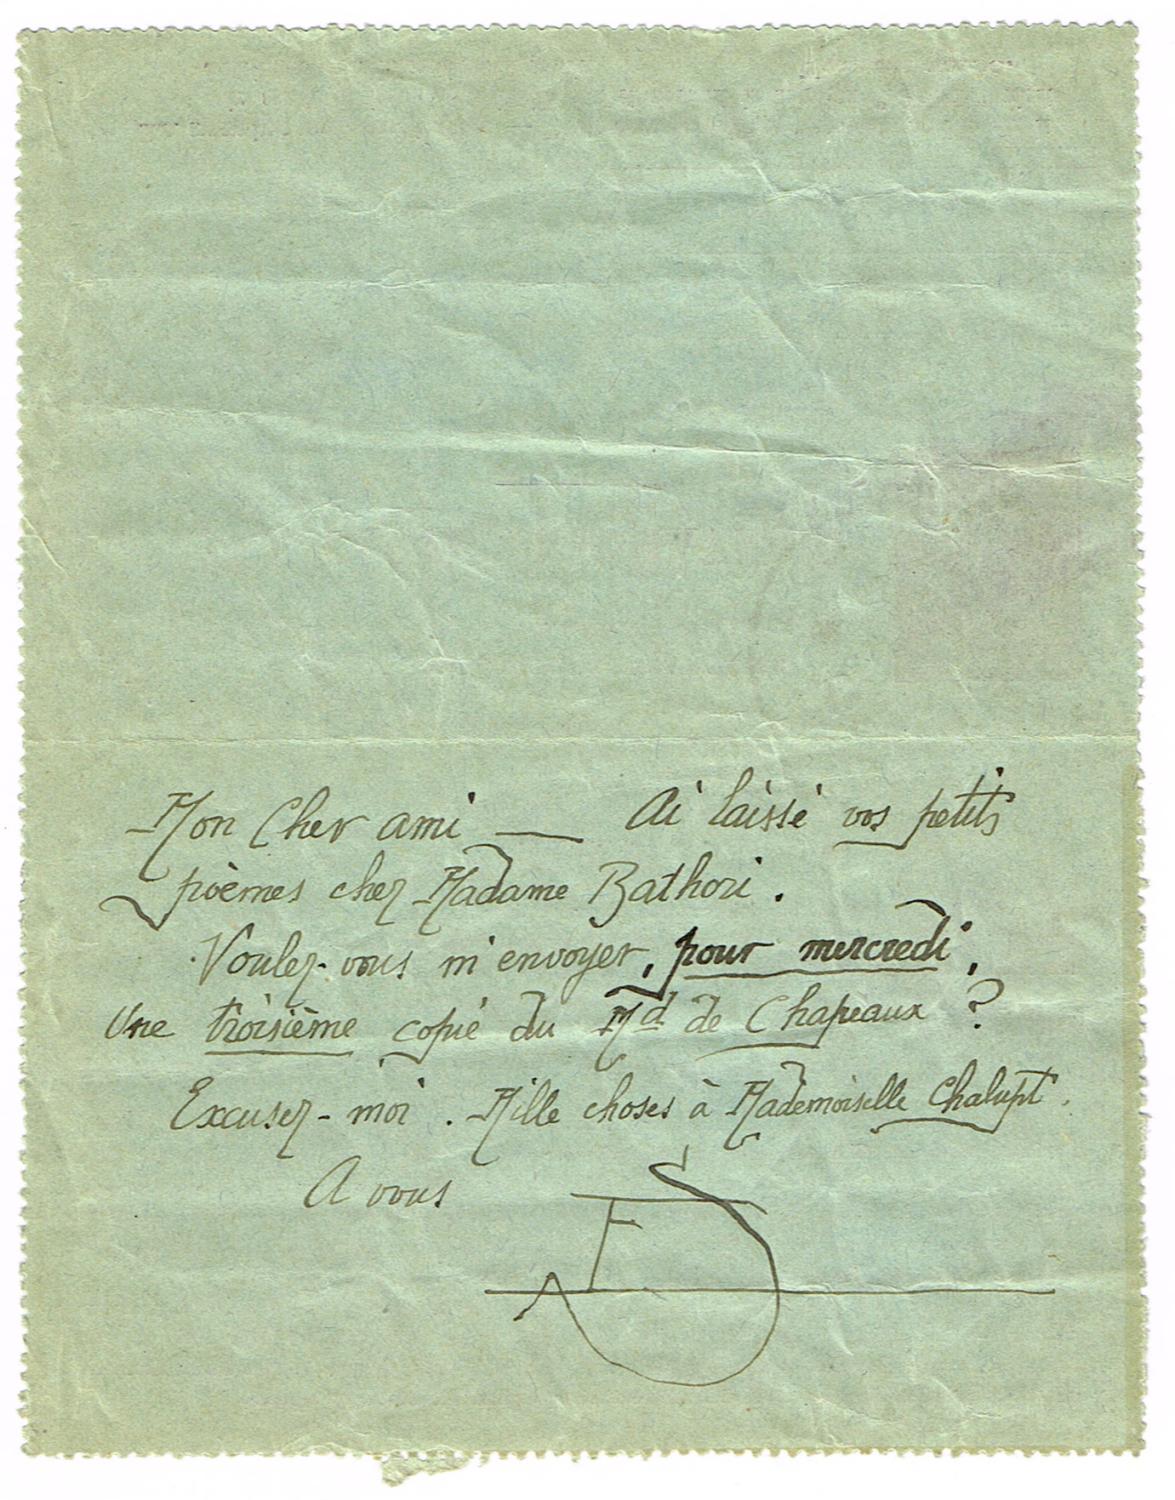 Mon Cher ami — Ai laissé vos petits
poèmes chez Madame Bathori.
Voulez-vous m'envoyer, pour mercredi,
Une troisième copie du Md de Chapeaux ?
Excusez-moi. Mille choses à Mademoiselle Chalupt.
A vous
ES